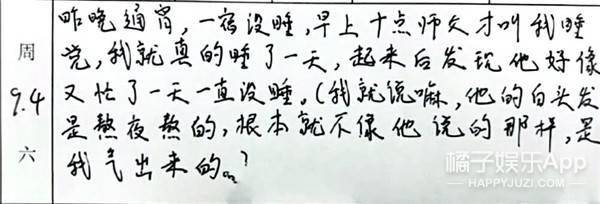 昨晚通宵,一宿没睡,早上十点师父才叫我睡
觉,我就真的睡了一天,起来后发现他好像
又忙了一天一直没睡。(我就说嘛,他的白头发
是熬夜熬的,根本就不像他说的那样,是
我气出来的。?
周
9.4
六
橘子娱乐App
HAPPYJUZI.COM